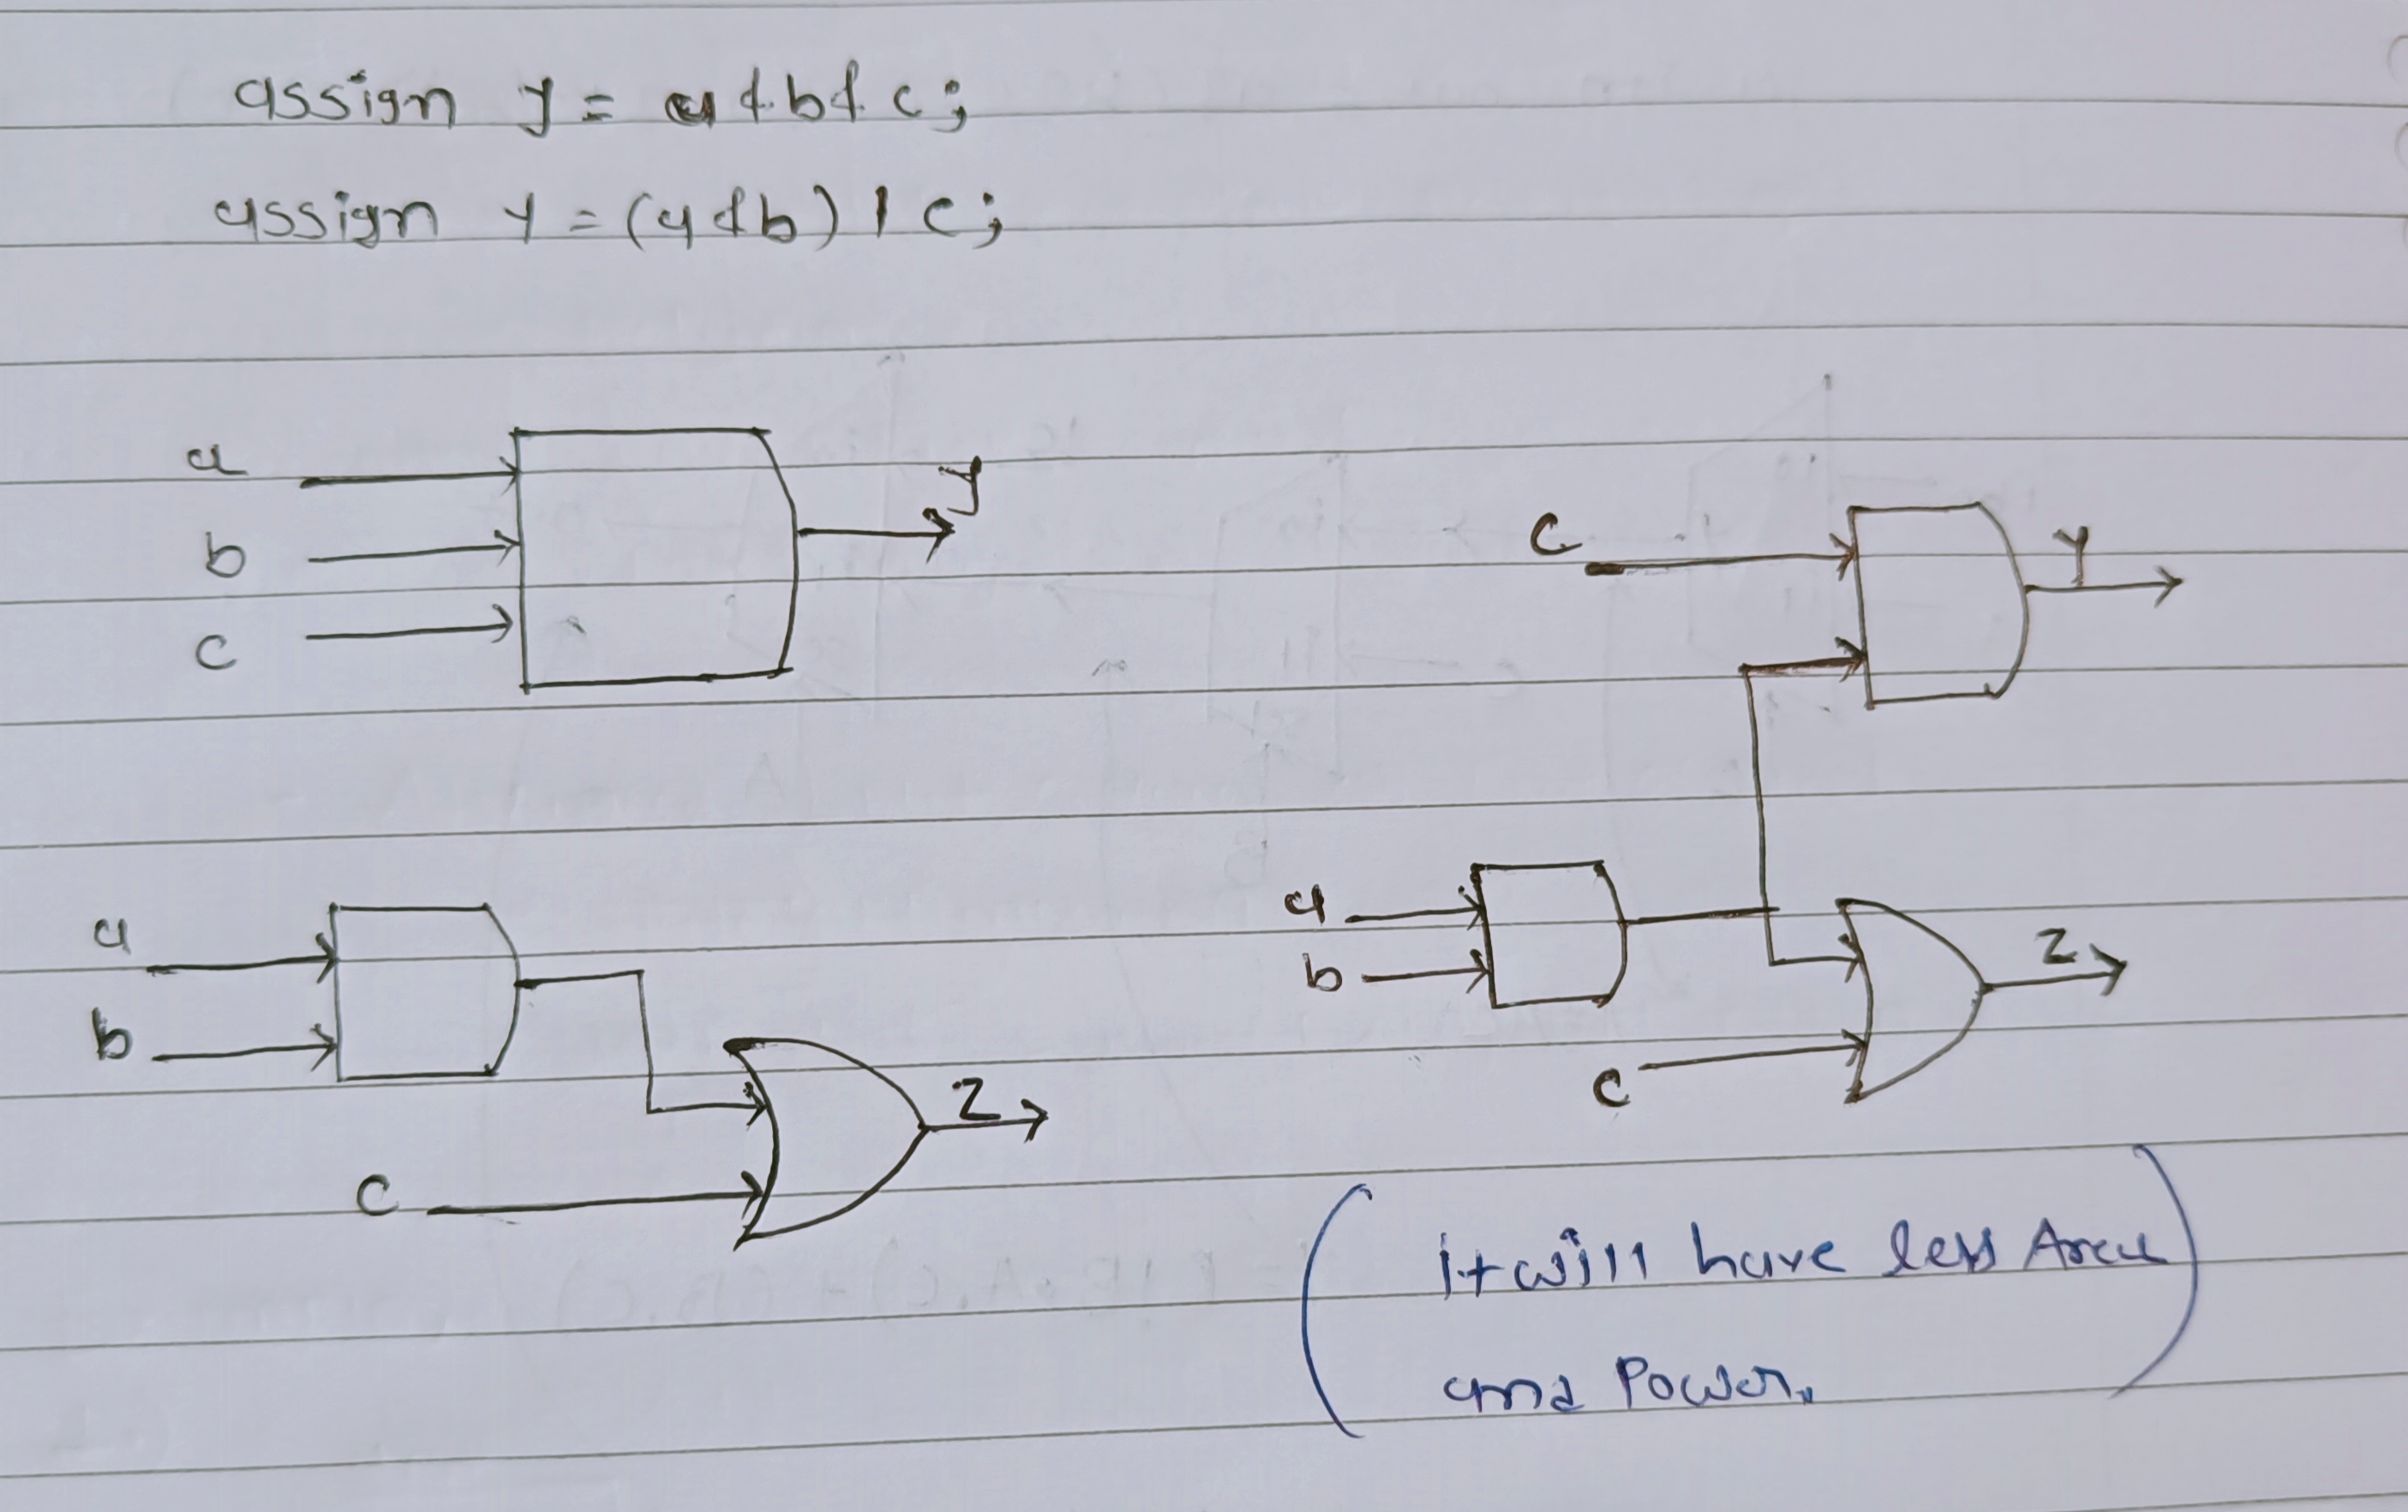 assign y = a & b & c;
assign y = (a & b) | c;
a
b
c
y
c
y
a
b
c
z
a
b
c
z
it will have less Area
and Power.